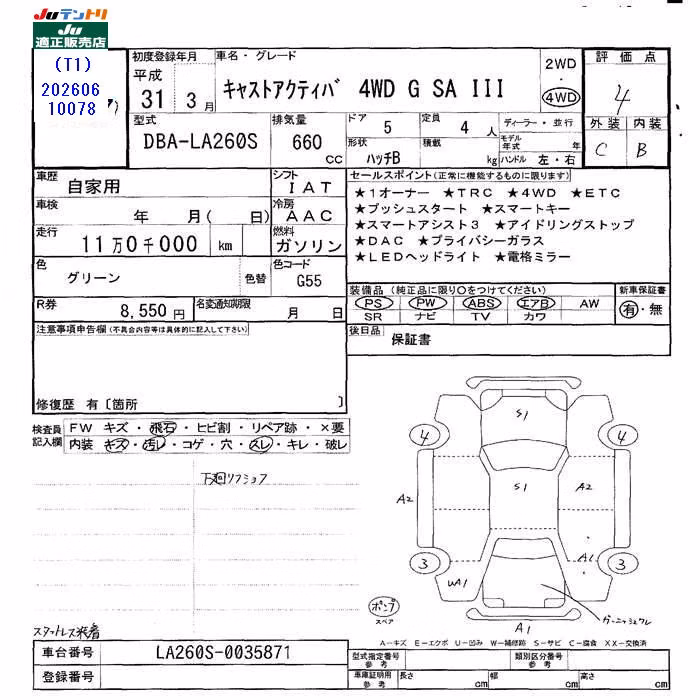 Juテントリ
Ju
適正販売店
(T1)
202606
10078
初度登録年月
平成
31 3月
車名・グレード
キャストアクティバ 4WD G SA III
2WD
・
4WD
評価点
4
外装 内装
C B
型式
DBA-LA260S
排気量
660
cc
ドア
5
定員
4 人
ディーラー・並行
モデル年式 年
形状
ハッチB
積載
kg
ハンドル 左・右
車歴
自家用
シフト
IAT
車検
年 月( 日)
冷房
AAC
走行
11万0千000 km
燃料
ガソリン
色
グリーン
色替
色コード
G55
R券
8,550円
名変通知期限
月 日
セールスポイント(正常に機能するものに限ります)
★1オーナー ★TRC ★4WD ★ETC
★プッシュスタート ★スマートキー
★スマートアシスト3 ★アイドリングストップ
★DAC ★プライバシーガラス
★LEDヘッドライト ★電格ミラー
装備品(純正品に限り○をつけてください)
PS PW ABS エアB AW
SR ナビ TV カワ
新車保証書
有・無
後日品
保証書
注意事項申告欄(不具合内容等は具体的に記入して下さい)
修復歴 有〔箇所 〕
検査員記入欄
FW キズ・飛石・ヒビ割・リペア跡・×要
内装 キズ・汚レ・コゲ・穴・スレ・キレ・破レ
下廻リサビ
S1
4
4
S1
A2
A2
3
3
A1
UA1
ポンプ
スペア
ガーニッシュワレ
A1
スタットレス装着
A-キズ E-エクボ U-凹み W-補修跡 S-サビ C-腐食 XX-交換済
車台番号
LA260S-0035871
登録番号
型式指定番号
参考
類別区分番号
参考
車庫証明用
参考
長さ cm
幅 cm
高さ cm